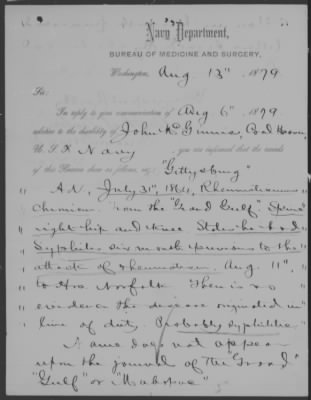 Navy Department,
BUREAU OF MEDICINE AND SURGERY,
Washington, Aug 13th, 1879.
Sir:
In reply to your communication of Aug 6th 1879
relative to the disability of John McGinnis,
U.S. Navy, you are informed that the records
of this Bureau show as follows, viz: "Gettysburg"
" Ad, July 31st, 1864, Rheumatismus "
" Chronicus. From the "Grand Gulf".
" right hip and knee. States he had "
" Syphilis six months previous to the "
" attack of rheumatism. Aug. 11th, "
" to Hos. Norfolk. There is no "
" evidence the disease originated in "
" line of duty. Probably syphilitic "
Name does not appear
upon the journal of the "Grand
Gulf" or